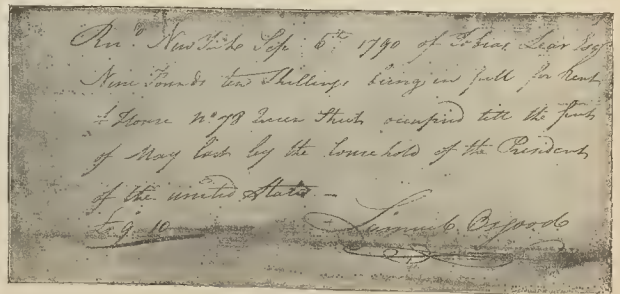 Rec.d New York Sep. 6th 1790 of Tobias Lear Esqr
Nine Pounds ten Shillings being in full for Rent
House no 78 Queen Street occupied till the first
of May last by the household of the President
of the united States. —
£9. 10
Samuel Osgood